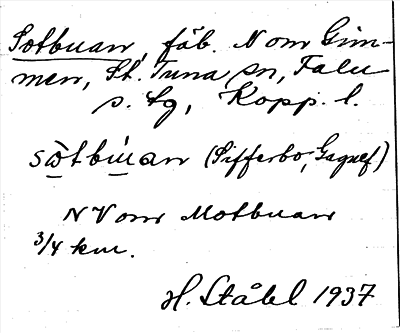 Sotbuan, fäb. N om Gim-
men, St. Tuna sn, Falu
s. tg, Kopp. l.
sòtbu̍an (Sifferbo, Gagnef.)
NV om Motbuan
3/4 km.
H. Ståhl 1937